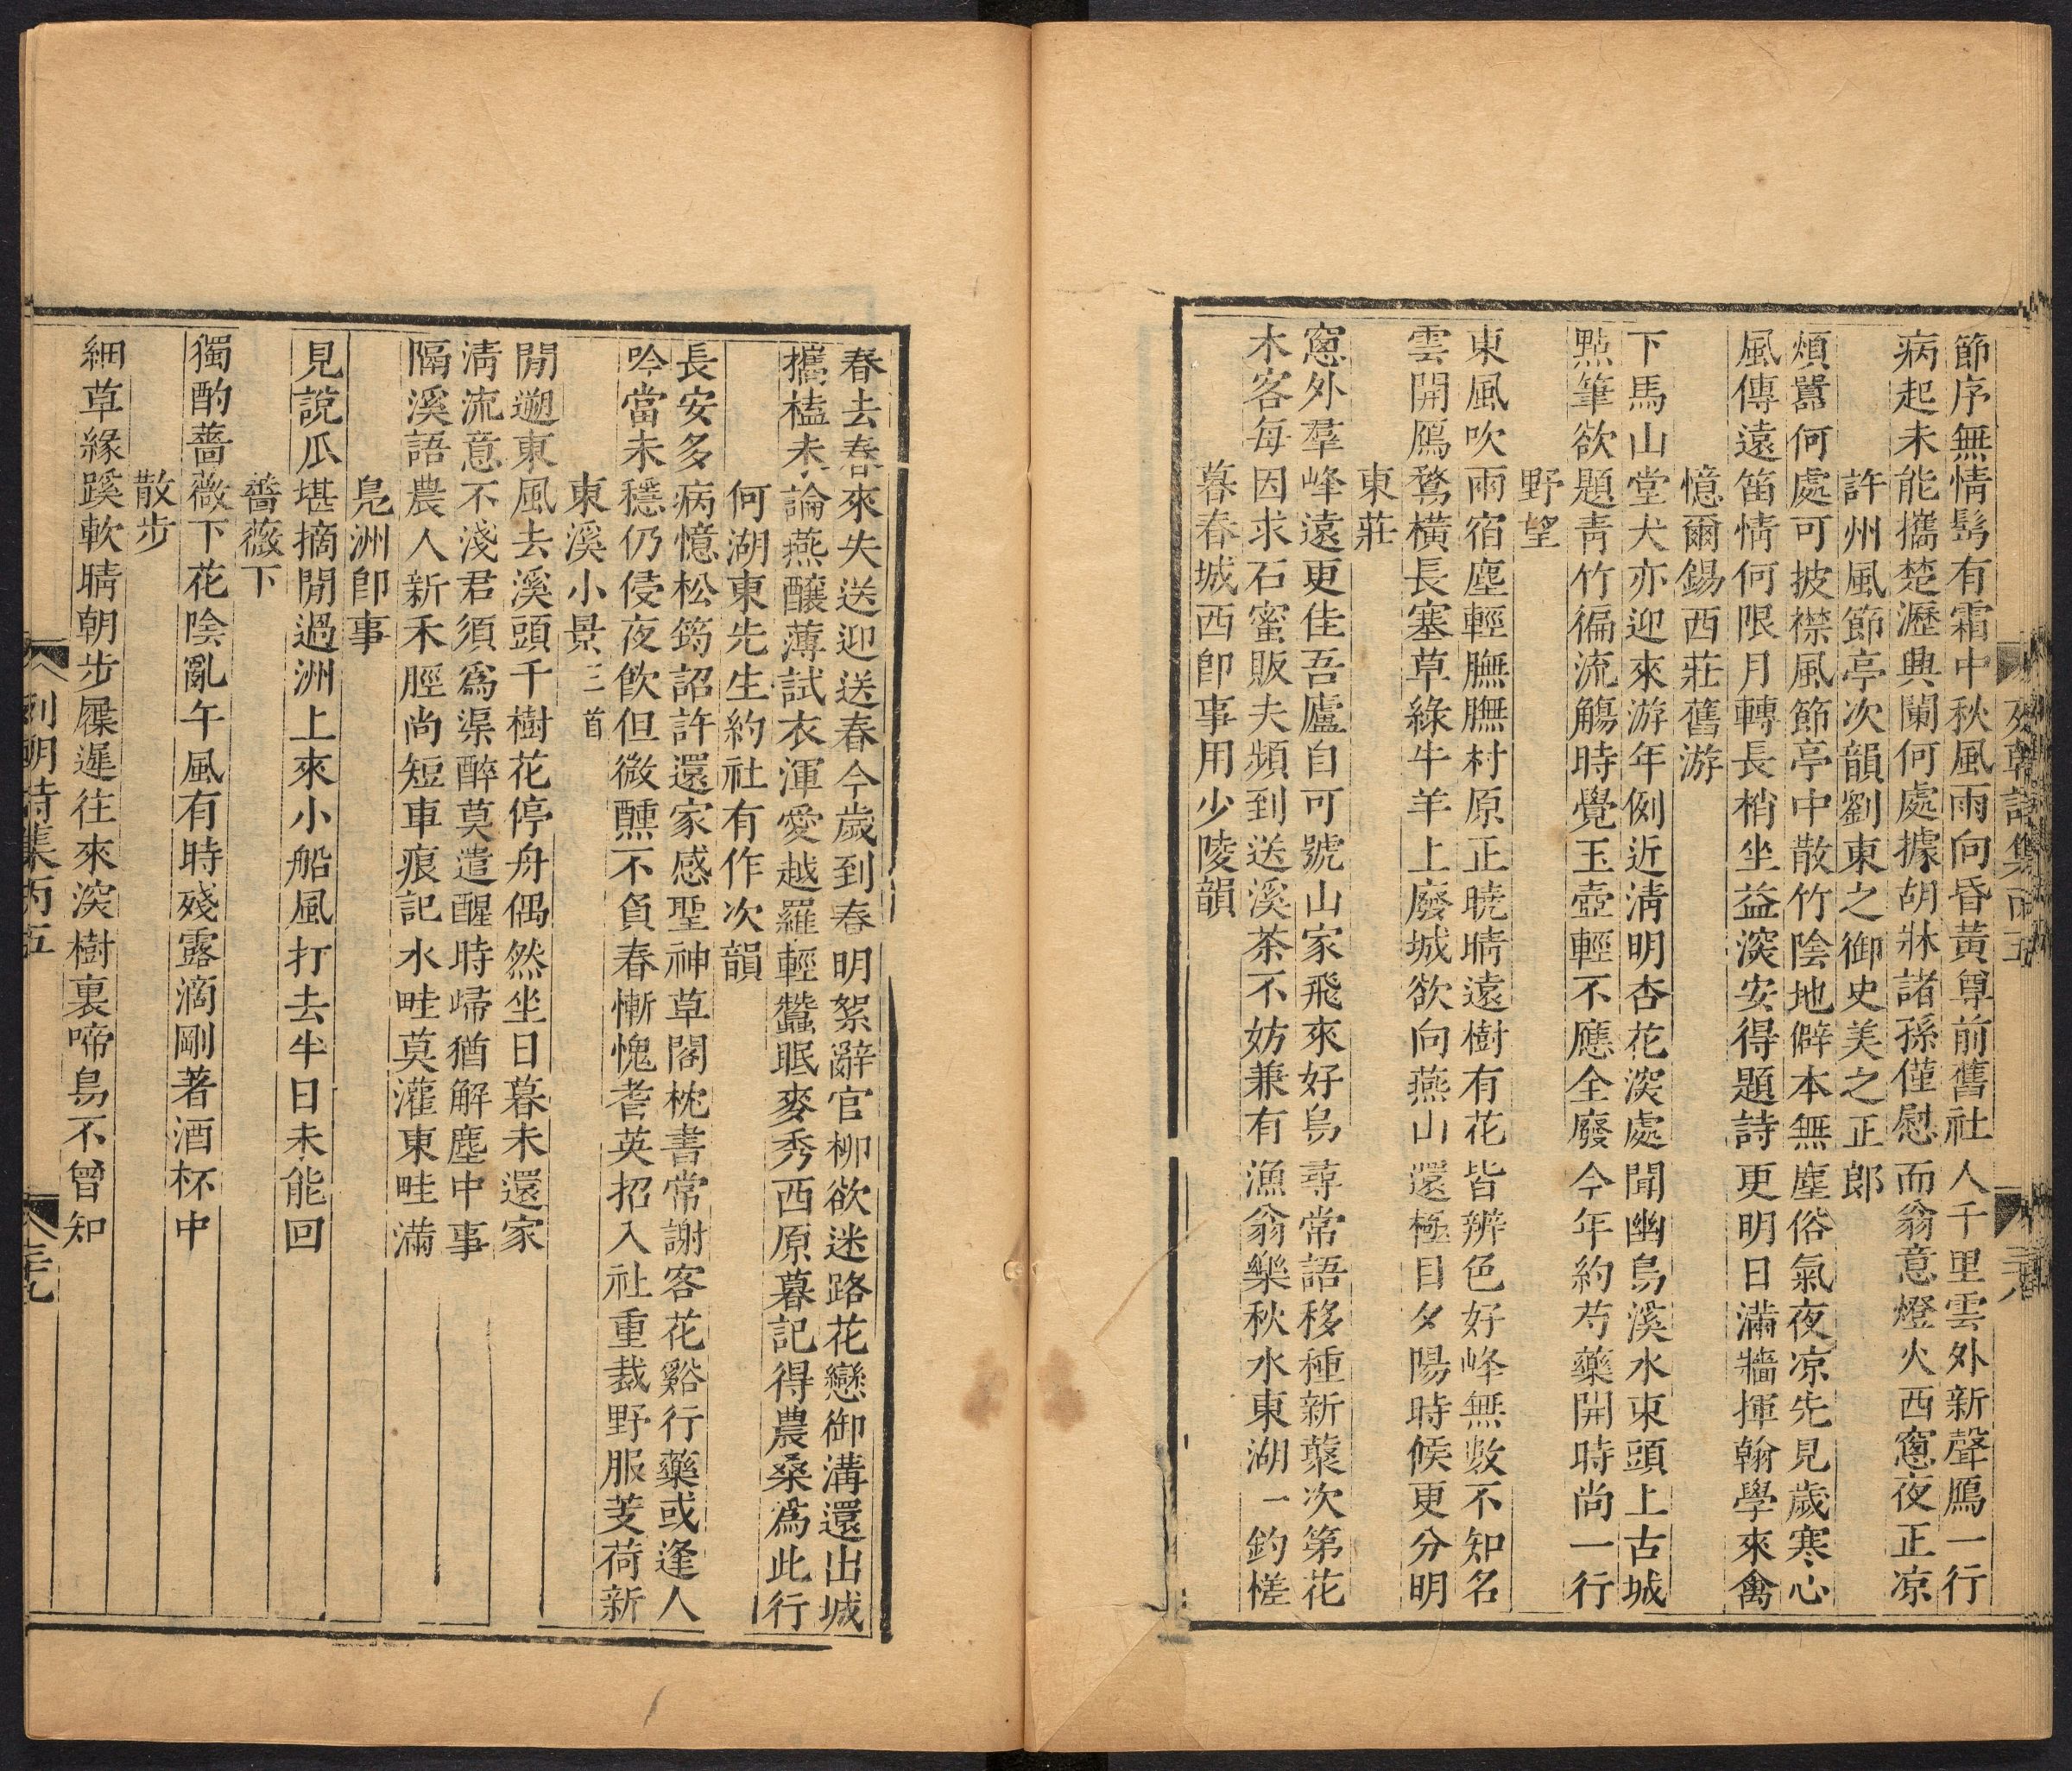 節序無情髩有霜中秋風雨向昏黃尊前舊社人千里雲外新聲鴈一行
病起未能攜楚瀝興闌何處據胡牀諸孫僅慰而翁意燈火西窻夜正凉
許州風節亭次韻劉東之御史美之正郎
煩囂何處可披襟風節亭中散竹陰地僻本無塵俗氣夜凉先見歲寒心
風傳遠笛情何限月轉長梢坐益深安得題詩更明日滿牆揮翰學來禽
憶爾錫西莊舊游
下馬山堂犬亦迎來游年例近淸明杏花深處聞幽鳥溪水東頭上古城
點筆欲題靑竹徧流觴時覺玉壺輕不應全廢今年約芍藥開時尚一行
野望
東風吹雨宿塵輕膴膴村原正曉晴遠樹有花皆辨色好峰無數不知名
雲開鴈鶩橫長塞草綠牛羊上廢城欲向燕山還極目夕陽時候更分明
東莊
窻外羣峰遠更佳吾廬自可號山家飛來好鳥尋常語移種新蕖次第花
木客每因求石蜜販夫頻到送溪茶不妨兼有漁翁樂秋水東湖一釣槎
暮春城西卽事用少陵韻
春去春來失送迎送春今歲到春明絮辭官柳欲迷路花戀御溝還出城
攜榼未論燕釀薄試衣渾愛越羅輕蠶眠麥秀西原暮記得農桑爲此行
何湖東先生約社有作次韻
長安多病憶松筠詔許還家感聖神草閣枕書常謝客花谿行藥或逢人
吟當未穩仍侵夜飮但微醺不負春慚愧耆英招入社重裁野服芰荷新
東溪小景三首
閒遡東風去溪頭千樹花停舟偶然坐日暮未還家
淸流意不淺君須爲渠醉莫遣醒時歸猶解塵中事
隔溪語農人新禾脛尚短車痕記水畦莫灌東畦滿
鳧洲卽事
見說瓜堪摘閒過洲上來小船風打去半日未能回
薔薇下
獨酌薔薇下花陰亂午風有時殘露滴剛著酒杯中
散步
細草緣蹊軟晴朝步屧遲往來深樹裏啼鳥不曾知
列朝詩集丙五